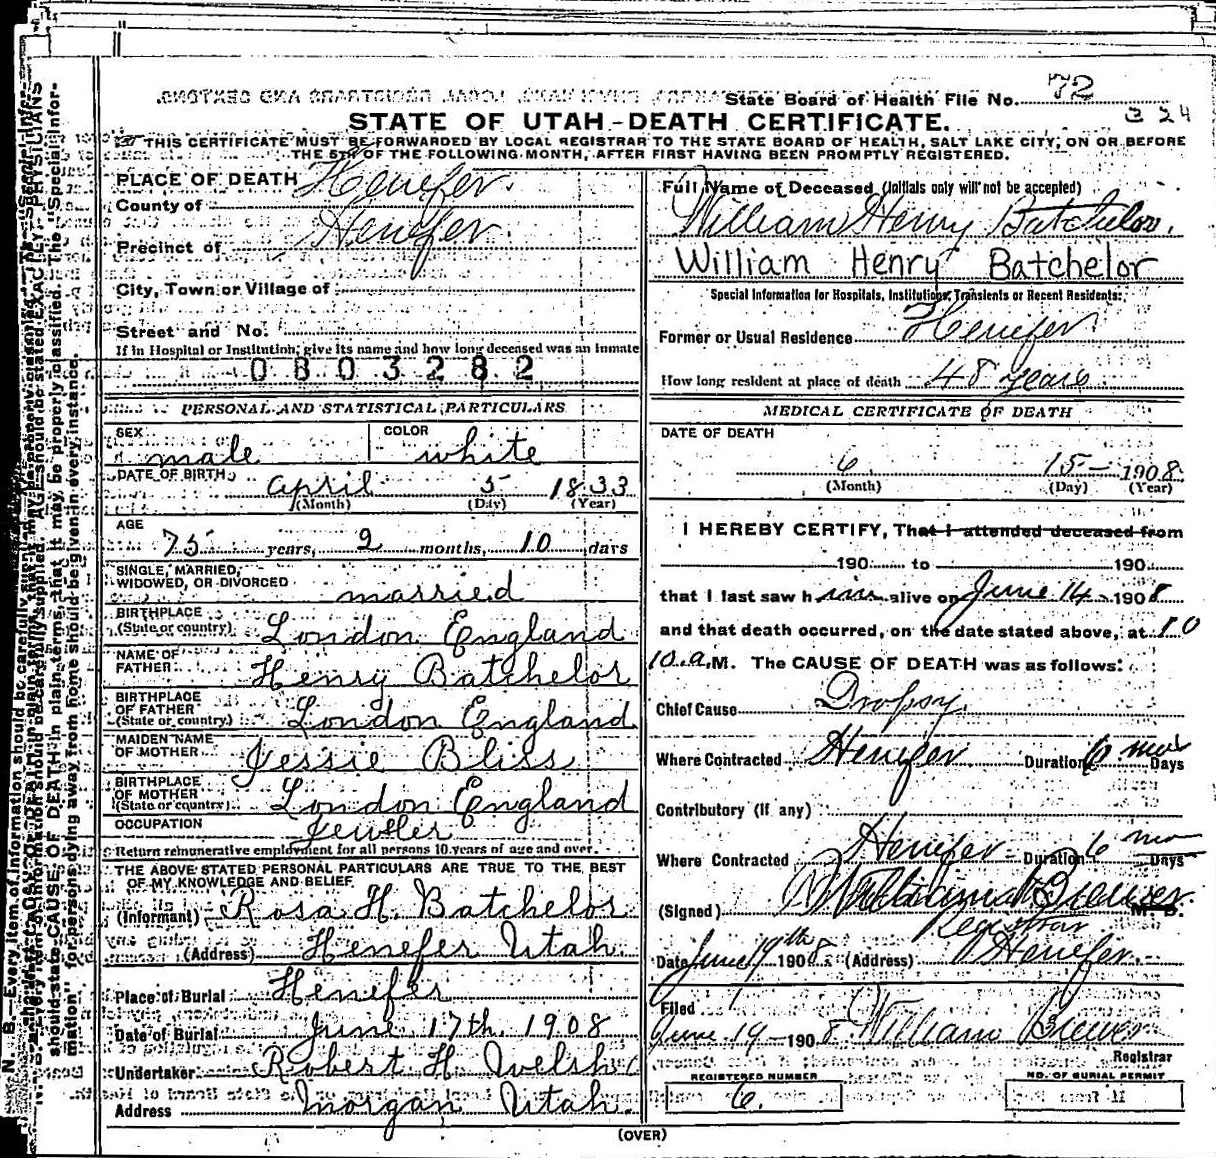 State Board of Health File No. 72
324
STATE OF UTAH-DEATH CERTIFICATE.
THIS CERTIFICATE MUST BE FORWARDED BY LOCAL REGISTRAR TO THE STATE BOARD OF HEALTH, SALT LAKE CITY, ON OR BEFORE
THE 5TH OF THE FOLLOWING MONTH, AFTER FIRST HAVING BEEN PROMPTLY REGISTERED.
PLACE OF DEATH
County of Henefer.
Precinct of Henefer
City, Town or Village of
Street and No.
If in Hospital or Institution, give its name and how long deceased was an inmate
0803282
PERSONAL AND STATISTICAL PARTICULARS
SEX male
COLOR white
DATE OF BIRTH april 5 1833
(Month) (Day) (Year)
AGE
75 years, 2 months, 10 days
SINGLE, MARRIED,
WIDOWED, OR DIVORCED married
BIRTHPLACE
(State or country) London England
NAME OF
FATHER Henry Batchelor
BIRTHPLACE
OF FATHER
(State or country) London England
MAIDEN NAME
OF MOTHER Jessie Bliss
BIRTHPLACE
OF MOTHER
(State or country) London England
OCCUPATION Jewler
Return remunerative employment for all persons 10 years of age and over.
THE ABOVE STATED PERSONAL PARTICULARS ARE TRUE TO THE BEST
OF MY KNOWLEDGE AND BELIEF
(Informant) Rosa H. Batchelor
(Address) Henefer Utah.
Place of Burial Henefer
Date of Burial June 17th. 1908
Undertaker Robert H. Welsh
Address Morgan Utah.
Full Name of Deceased (Initials only will not be accepted)
William Henry Batchelor.
William Henry Batchelor
Special Information for Hospitals, Institutions, Transients or Recent Residents:
Former or Usual Residence Henefer
How long resident at place of death 48 years
MEDICAL CERTIFICATE OF DEATH
DATE OF DEATH
6 15- 1908
(Month) (Day) (Year)
I HEREBY CERTIFY, That I attended deceased from
190 to 190
that I last saw him alive on June 14 1908
and that death occurred, on the date stated above, at 10
10.a.M. The CAUSE OF DEATH was as follows:
Chief Cause Dropsy
Where Contracted Henefer. Duration 6 mos Days
Contributory (If any)
Where Contracted Henefer- Duration 6 mo Days
(Signed) William Brewer. M. D.
Registrar
Date June 19th 1908. (Address) Henefer.
Filed
June 19-1908. William Brewer
Registrar
REGISTERED NUMBER
6.
NO. OF BURIAL PERMIT
(OVER)